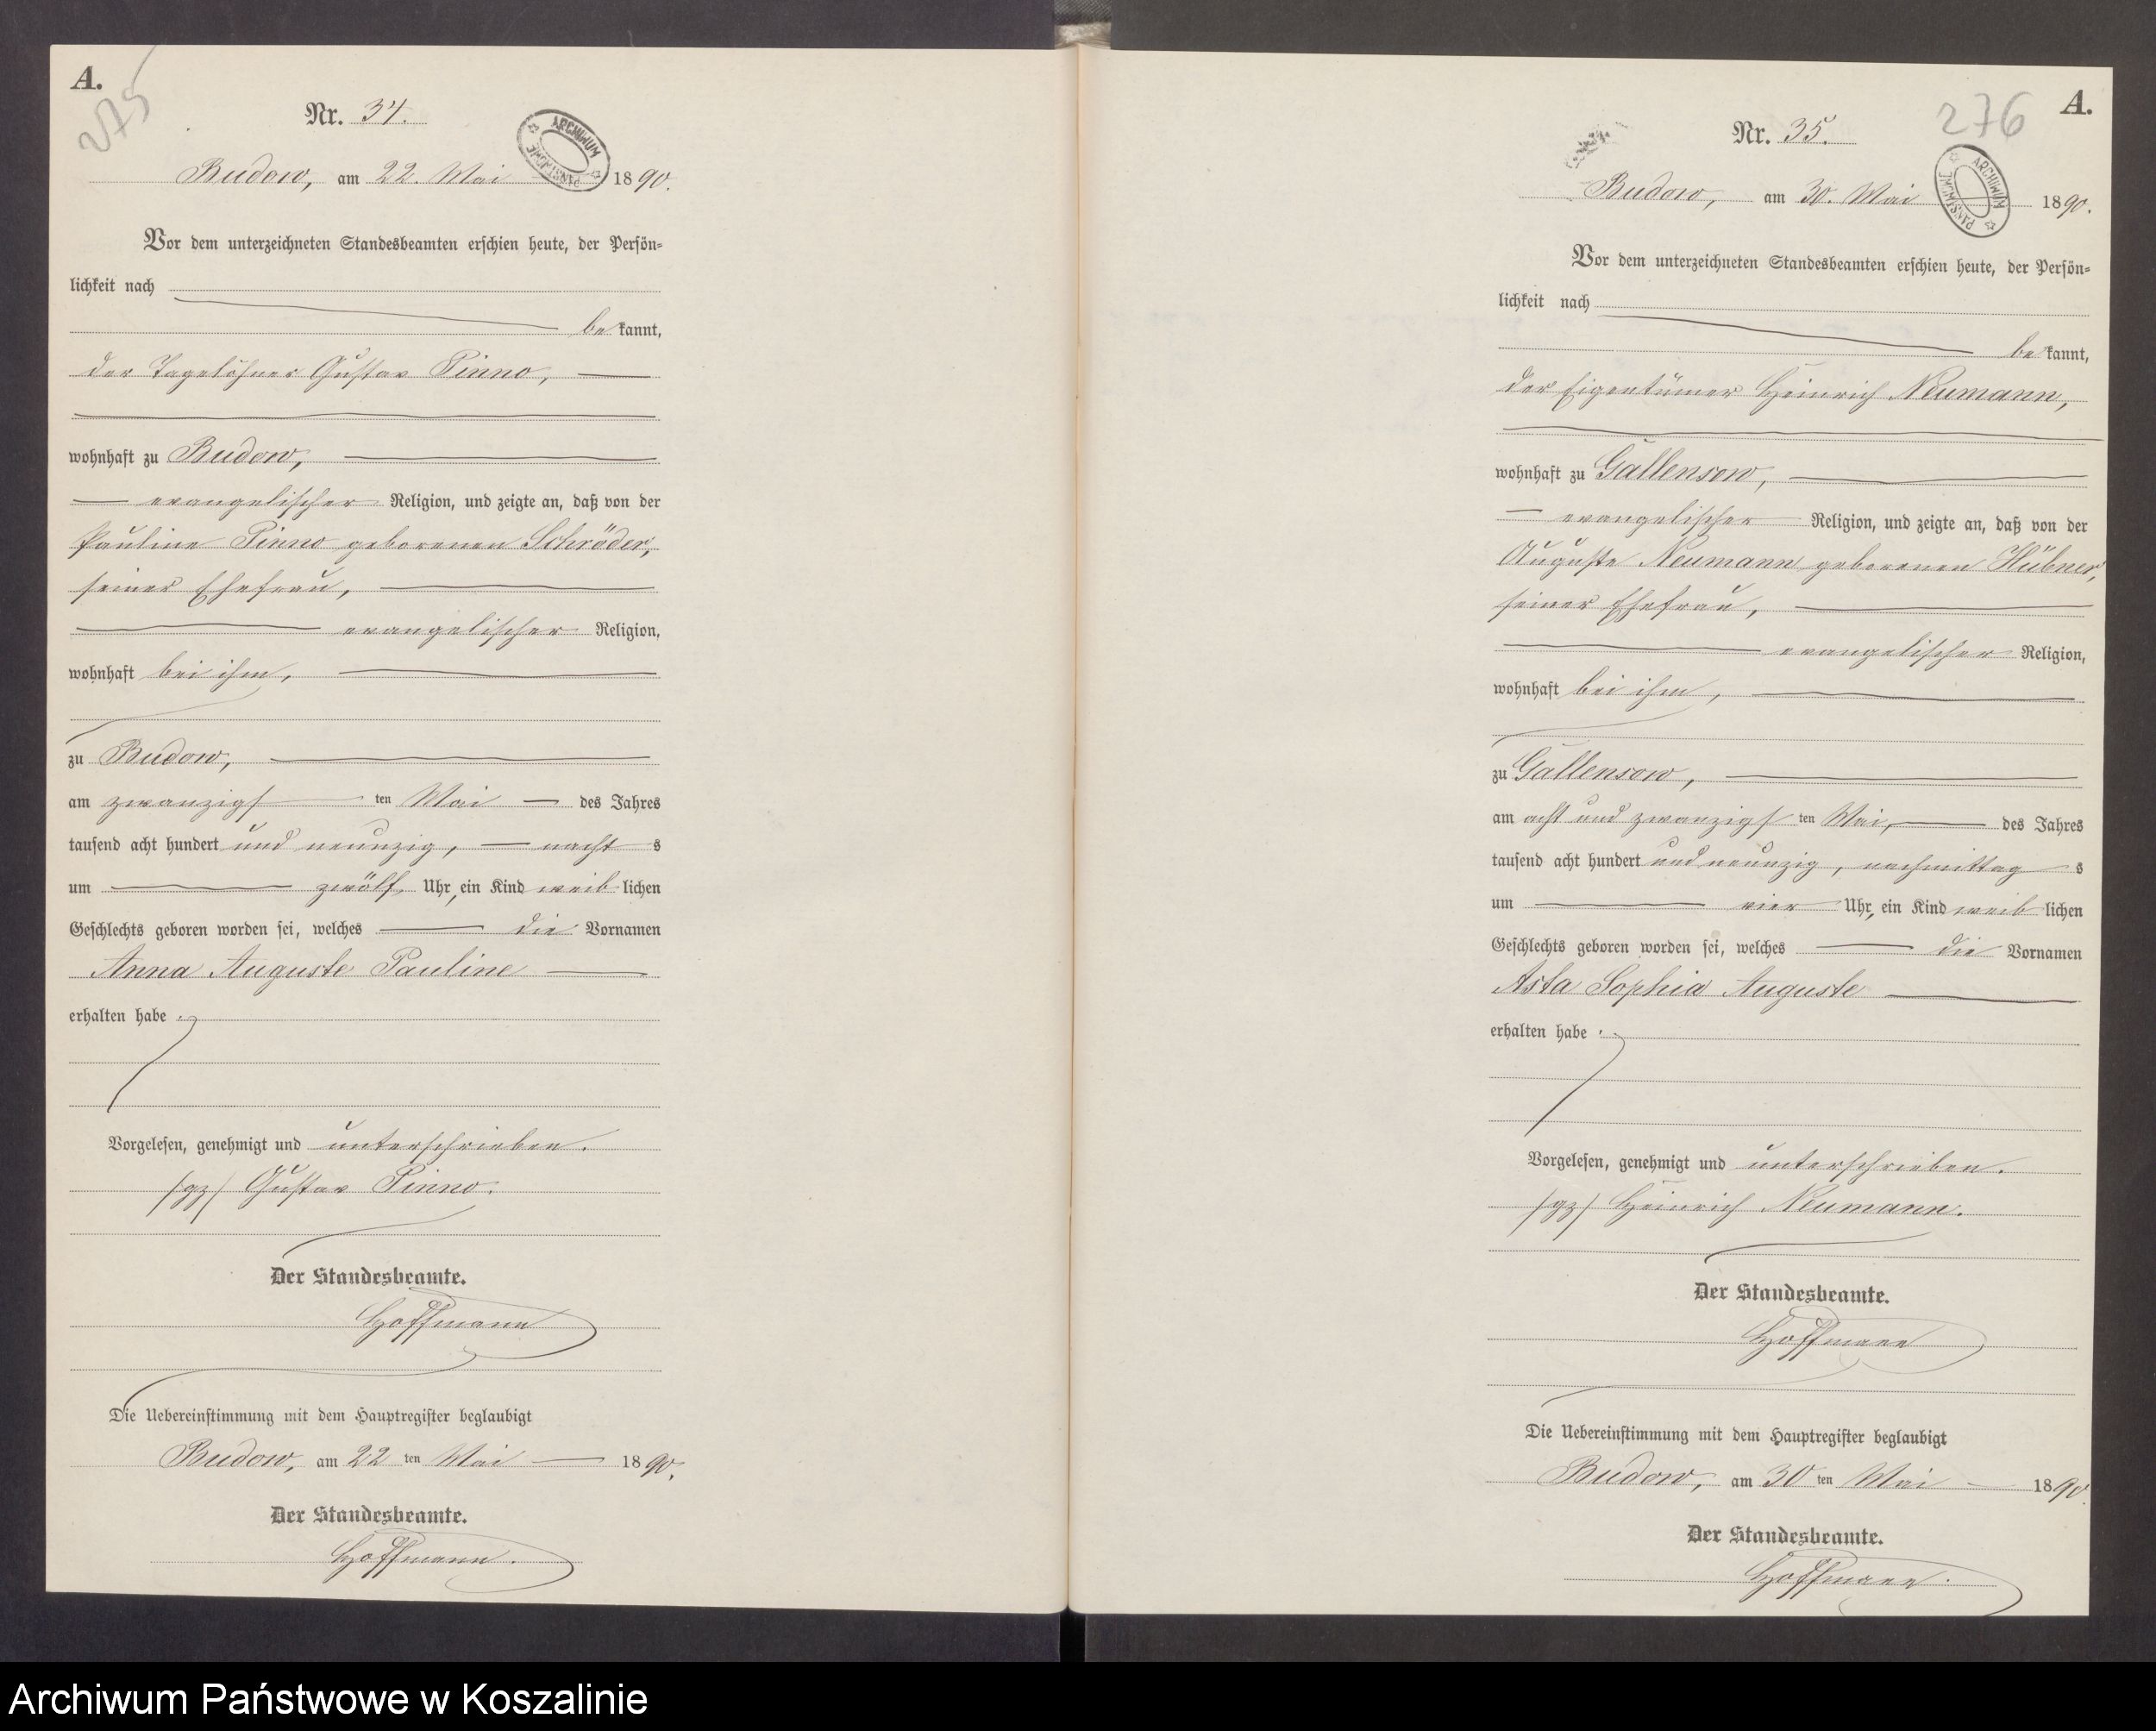 A.
275
Nr. 34.
ARCHIWUM PAŃSTWOWE
Budow, am 22. Mai 1890.
Vor dem unterzeichneten Standesbeamten erschien heute, der Persön=
lichkeit nach
bekannt,
der Tagelöhner Gustav Pinno,
wohnhaft zu Budow,
evangelischer Religion, und zeigte an, daß von der
Pauline Pinno geborenen Schröder,
seiner Ehefrau,
evangelischer Religion,
wohnhaft bei ihm,
zu Budow,
am zwanzigsten Mai des Jahres
tausend acht hundert und neunzig, nachts
um zwölf Uhr, ein Kind weiblichen
Geschlechts geboren worden sei, welches die Vornamen
Anna Auguste Pauline
erhalten habe.
Vorgelesen, genehmigt und unterschrieben.
/gz/ Gustav Pinno.
Der Standesbeamte.
Hoffmann
Die Uebereinstimmung mit dem Hauptregister beglaubigt
Budow, am 22 ten Mai 1890.
Der Standesbeamte.
Hoffmann.
A.
276
Nr. 35.
ARCHIWUM PAŃSTWOWE
Budow, am 30. Mai 1890.
Vor dem unterzeichneten Standesbeamten erschien heute, der Persön=
lichkeit nach
bekannt,
der Eigentümer Heinrich Neumann,
wohnhaft zu Gallensow,
evangelischer Religion, und zeigte an, daß von der
Auguste Neumann geborenen Hübner,
seiner Ehefrau,
evangelischer Religion,
wohnhaft bei ihm,
zu Gallensow,
am acht und zwanzigsten Mai, des Jahres
tausend acht hundert und neunzig, nachmittags
um vier Uhr, ein Kind weiblichen
Geschlechts geboren worden sei, welches die Vornamen
Asta Sophia Auguste
erhalten habe.
Vorgelesen, genehmigt und unterschrieben.
/gz/ Heinrich Neumann.
Der Standesbeamte.
Hoffmann
Die Uebereinstimmung mit dem Hauptregister beglaubigt
Budow, am 30 ten Mai 1890.
Der Standesbeamte.
Hoffmann.
Archiwum Państwowe w Koszalinie